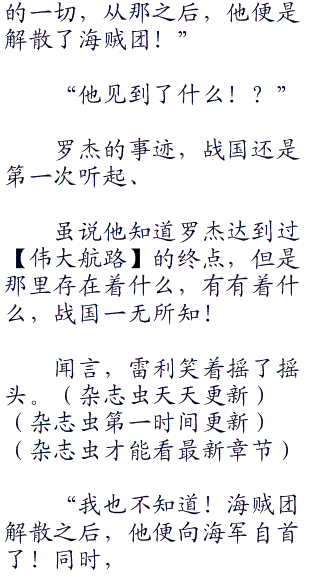 的一切，从那之后，他便是
解散了海贼团！”
“他见到了什么！？”
罗杰的事迹，战国还是
第一次听起、
虽说他知道罗杰达到过
【伟大航路】的终点，但是
那里存在着什么，有有着什
么，战国一无所知！
闻言，雷利笑着摇了摇
头。（杂志虫天天更新）
（杂志虫第一时间更新）
（杂志虫才能看最新章节）
“我也不知道！海贼团
解散之后，他便向海军自首
了！同时，